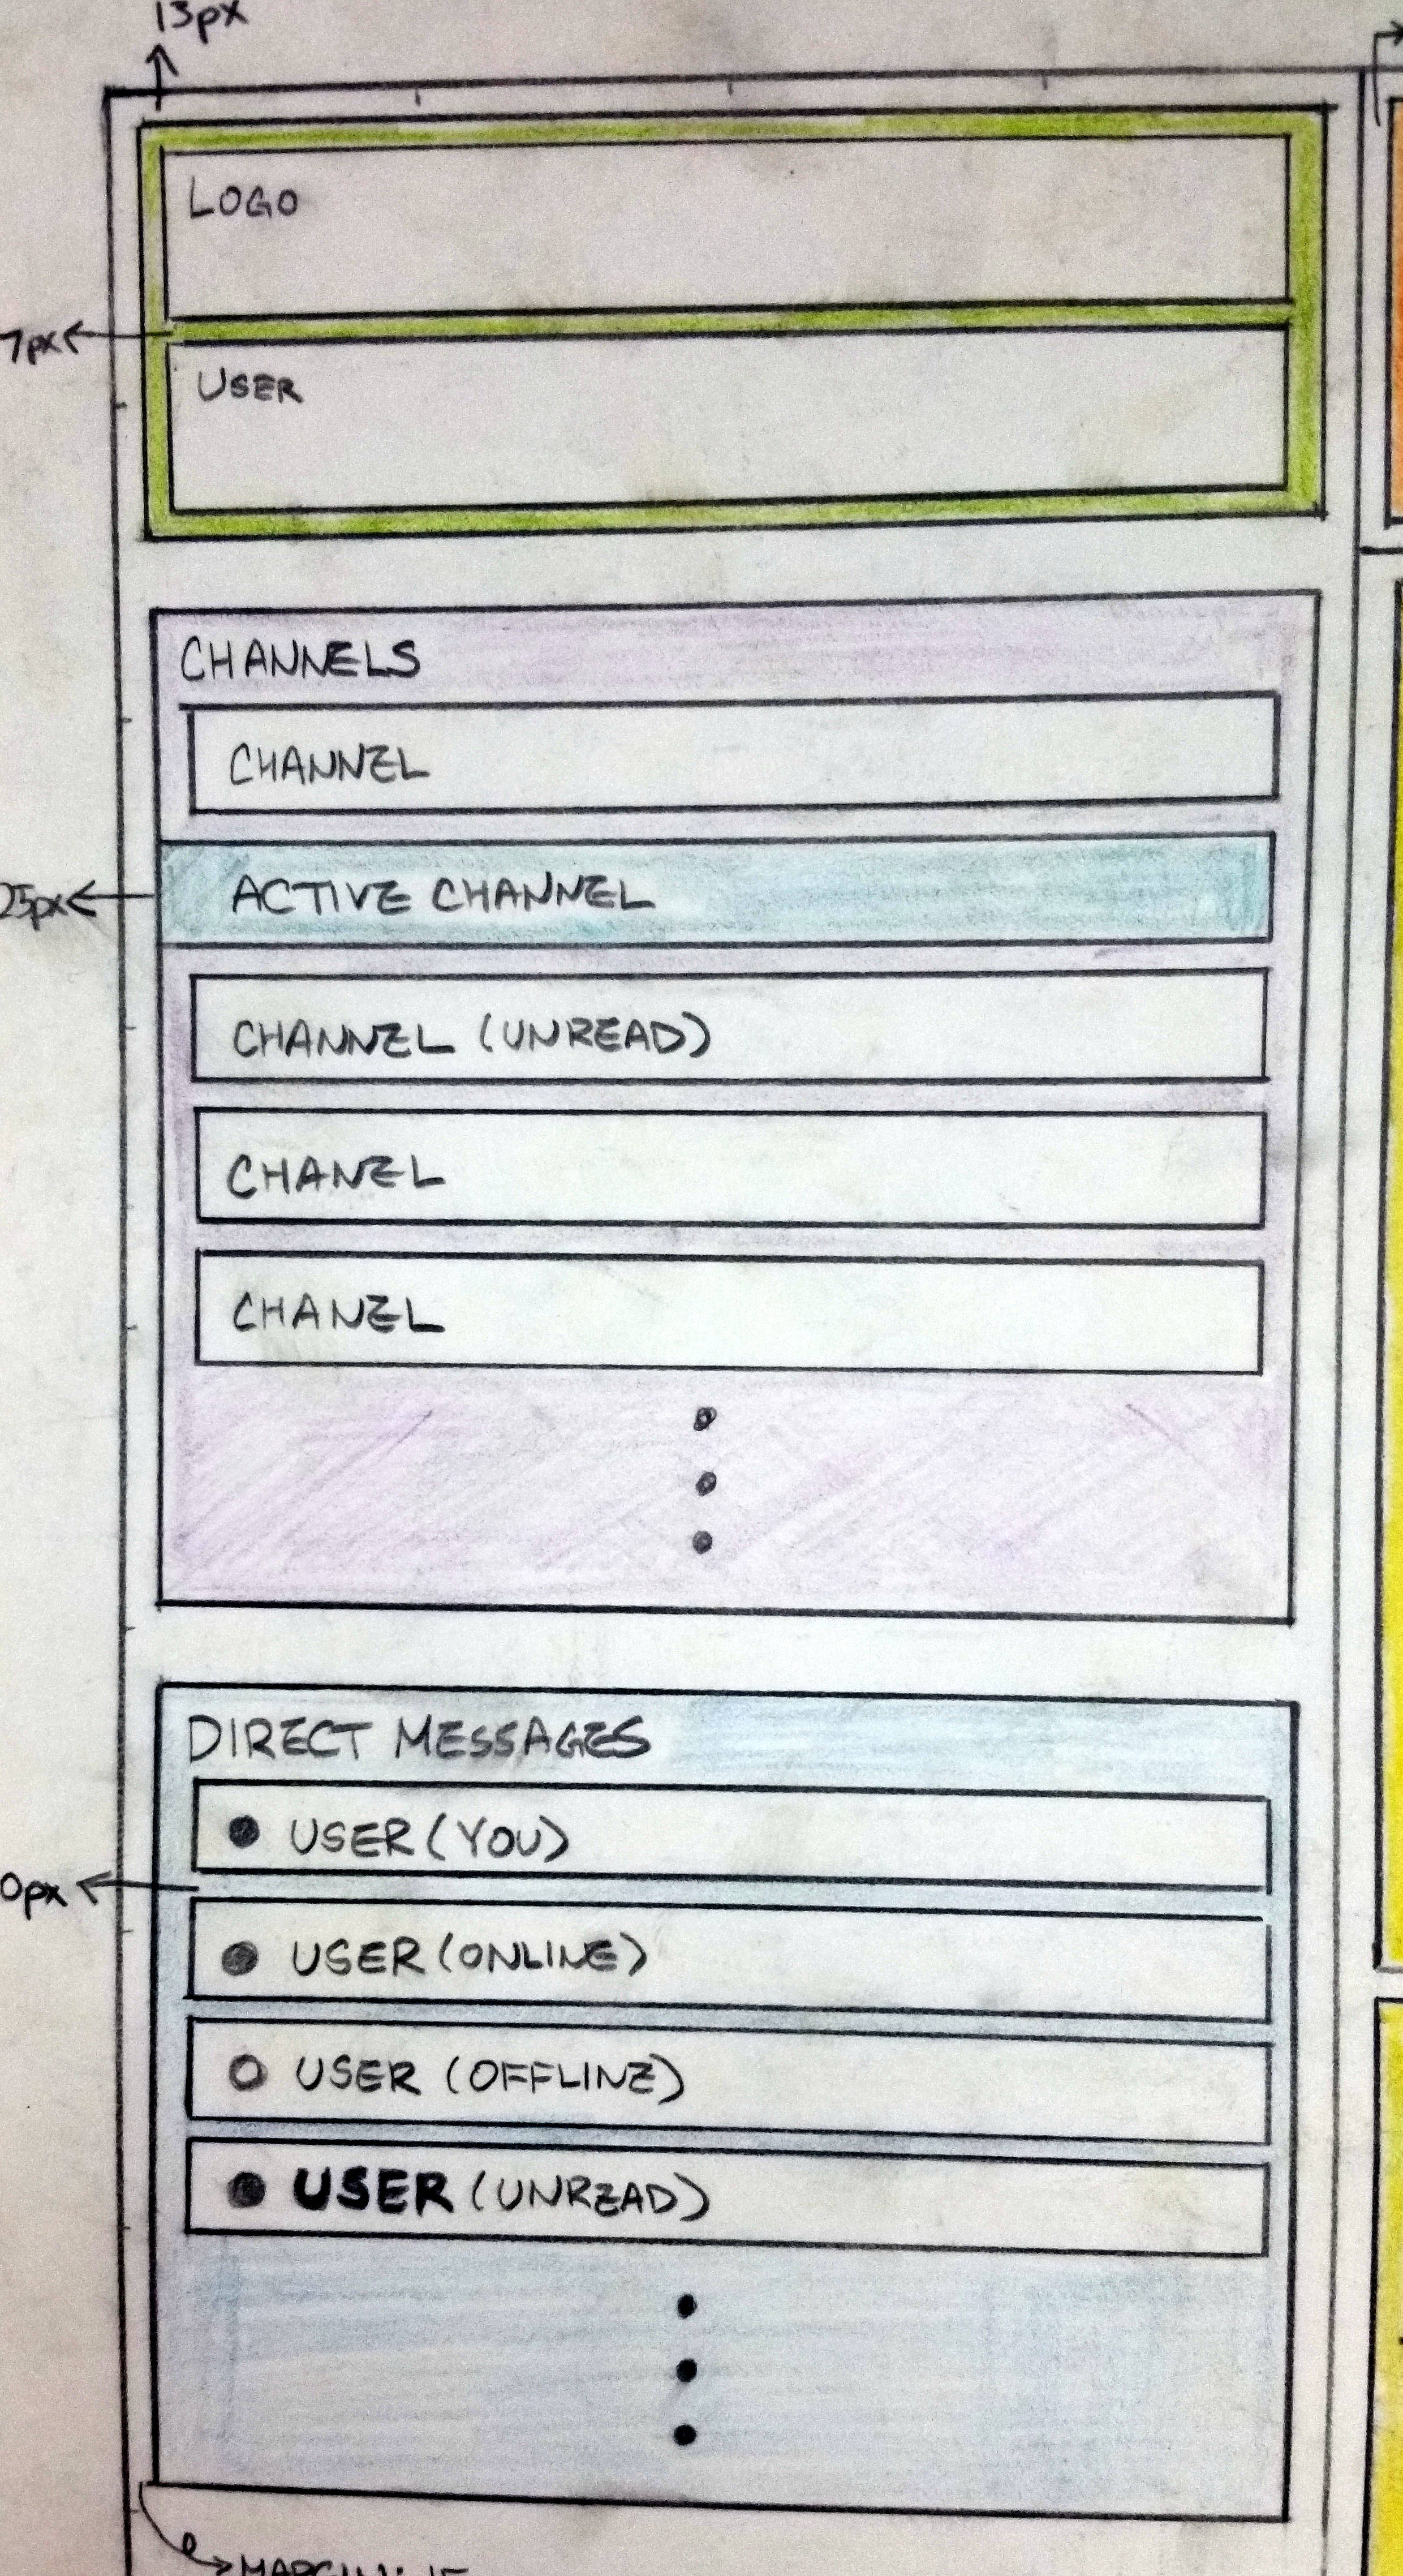 13px
LOGO
7px
USER
CHANNELS
CHANNEL
25px
ACTIVE CHANNEL
CHANNEL (UNREAD)
CHANEL
CHANEL
DIRECT MESSAGES
USER (YOU)
0px
USER (ONLINE)
USER (OFFLINE)
USER (UNREAD)